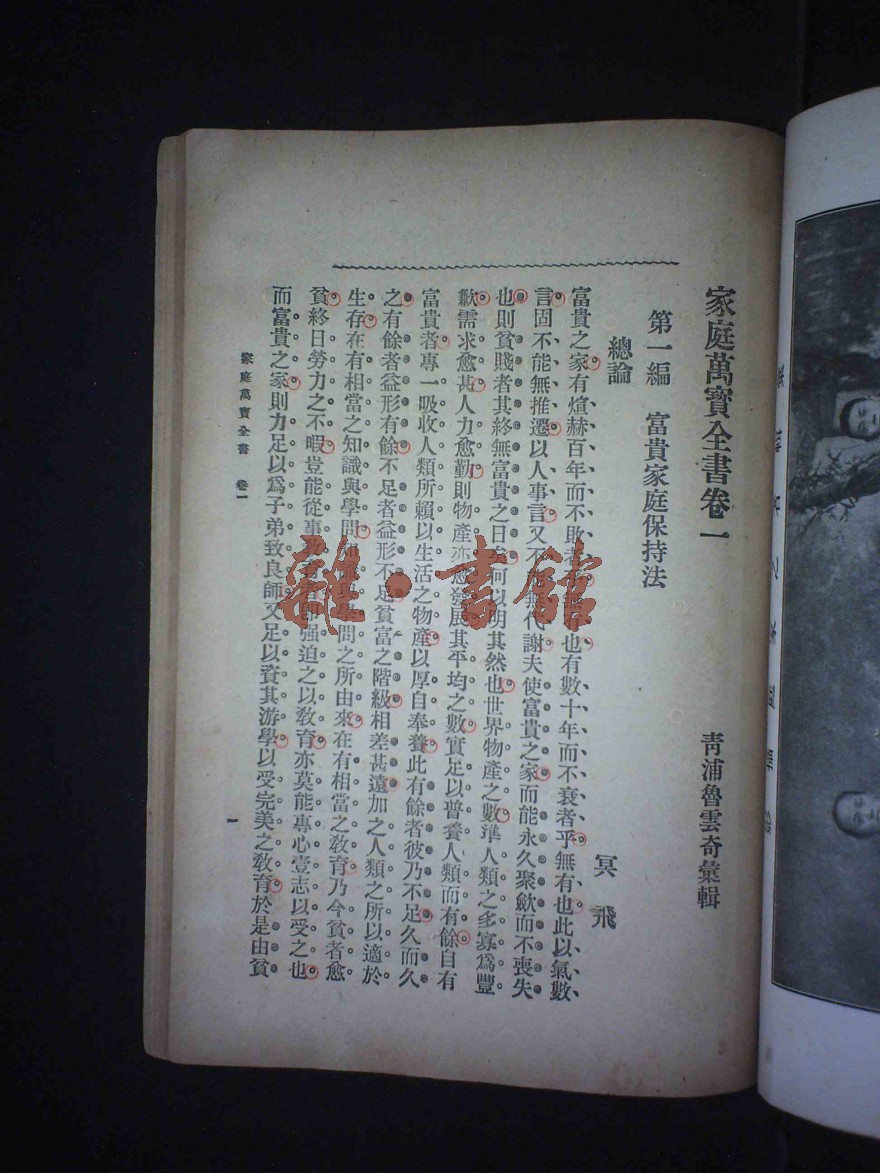 家庭萬寶全書卷一
青浦魯雲奇彙輯
第一編　富貴家庭保持法
總論
冥飛
富貴之家有煊赫百年而不敗者乎無有也有數十年而不衰者乎無有也此以氣數
言固不能無推遷以人事言又不能無代謝夫使富貴之家而能永久聚歛而不喪失
也則貧賤者其終無富貴之日矣何以明其然也世界物產之數準人類之多寡爲豐
歉需求愈甚人力愈勤則物產亦愈發展其平均之數實足以普養人類而有餘自有
富貴者專一吸收人類所賴以生活之物產以厚自奉養此有餘者彼乃不足久而久
之有餘者益形有餘不足者益形不足貧富之階級相差甚遠加之人類之所以適於
生存在有相當之知識與學問知識與學問之所由來在有相當之敎育乃今貧者愈
貧終日勞力之不暇豈能從事敎育者卽强迫之以敎育亦莫能專心壹志以受之也
而富貴之家則力足以爲子弟致良師又足以資其游學以受完美之敎育於是由貧
家庭萬寶全書　卷一
一
雜·書館